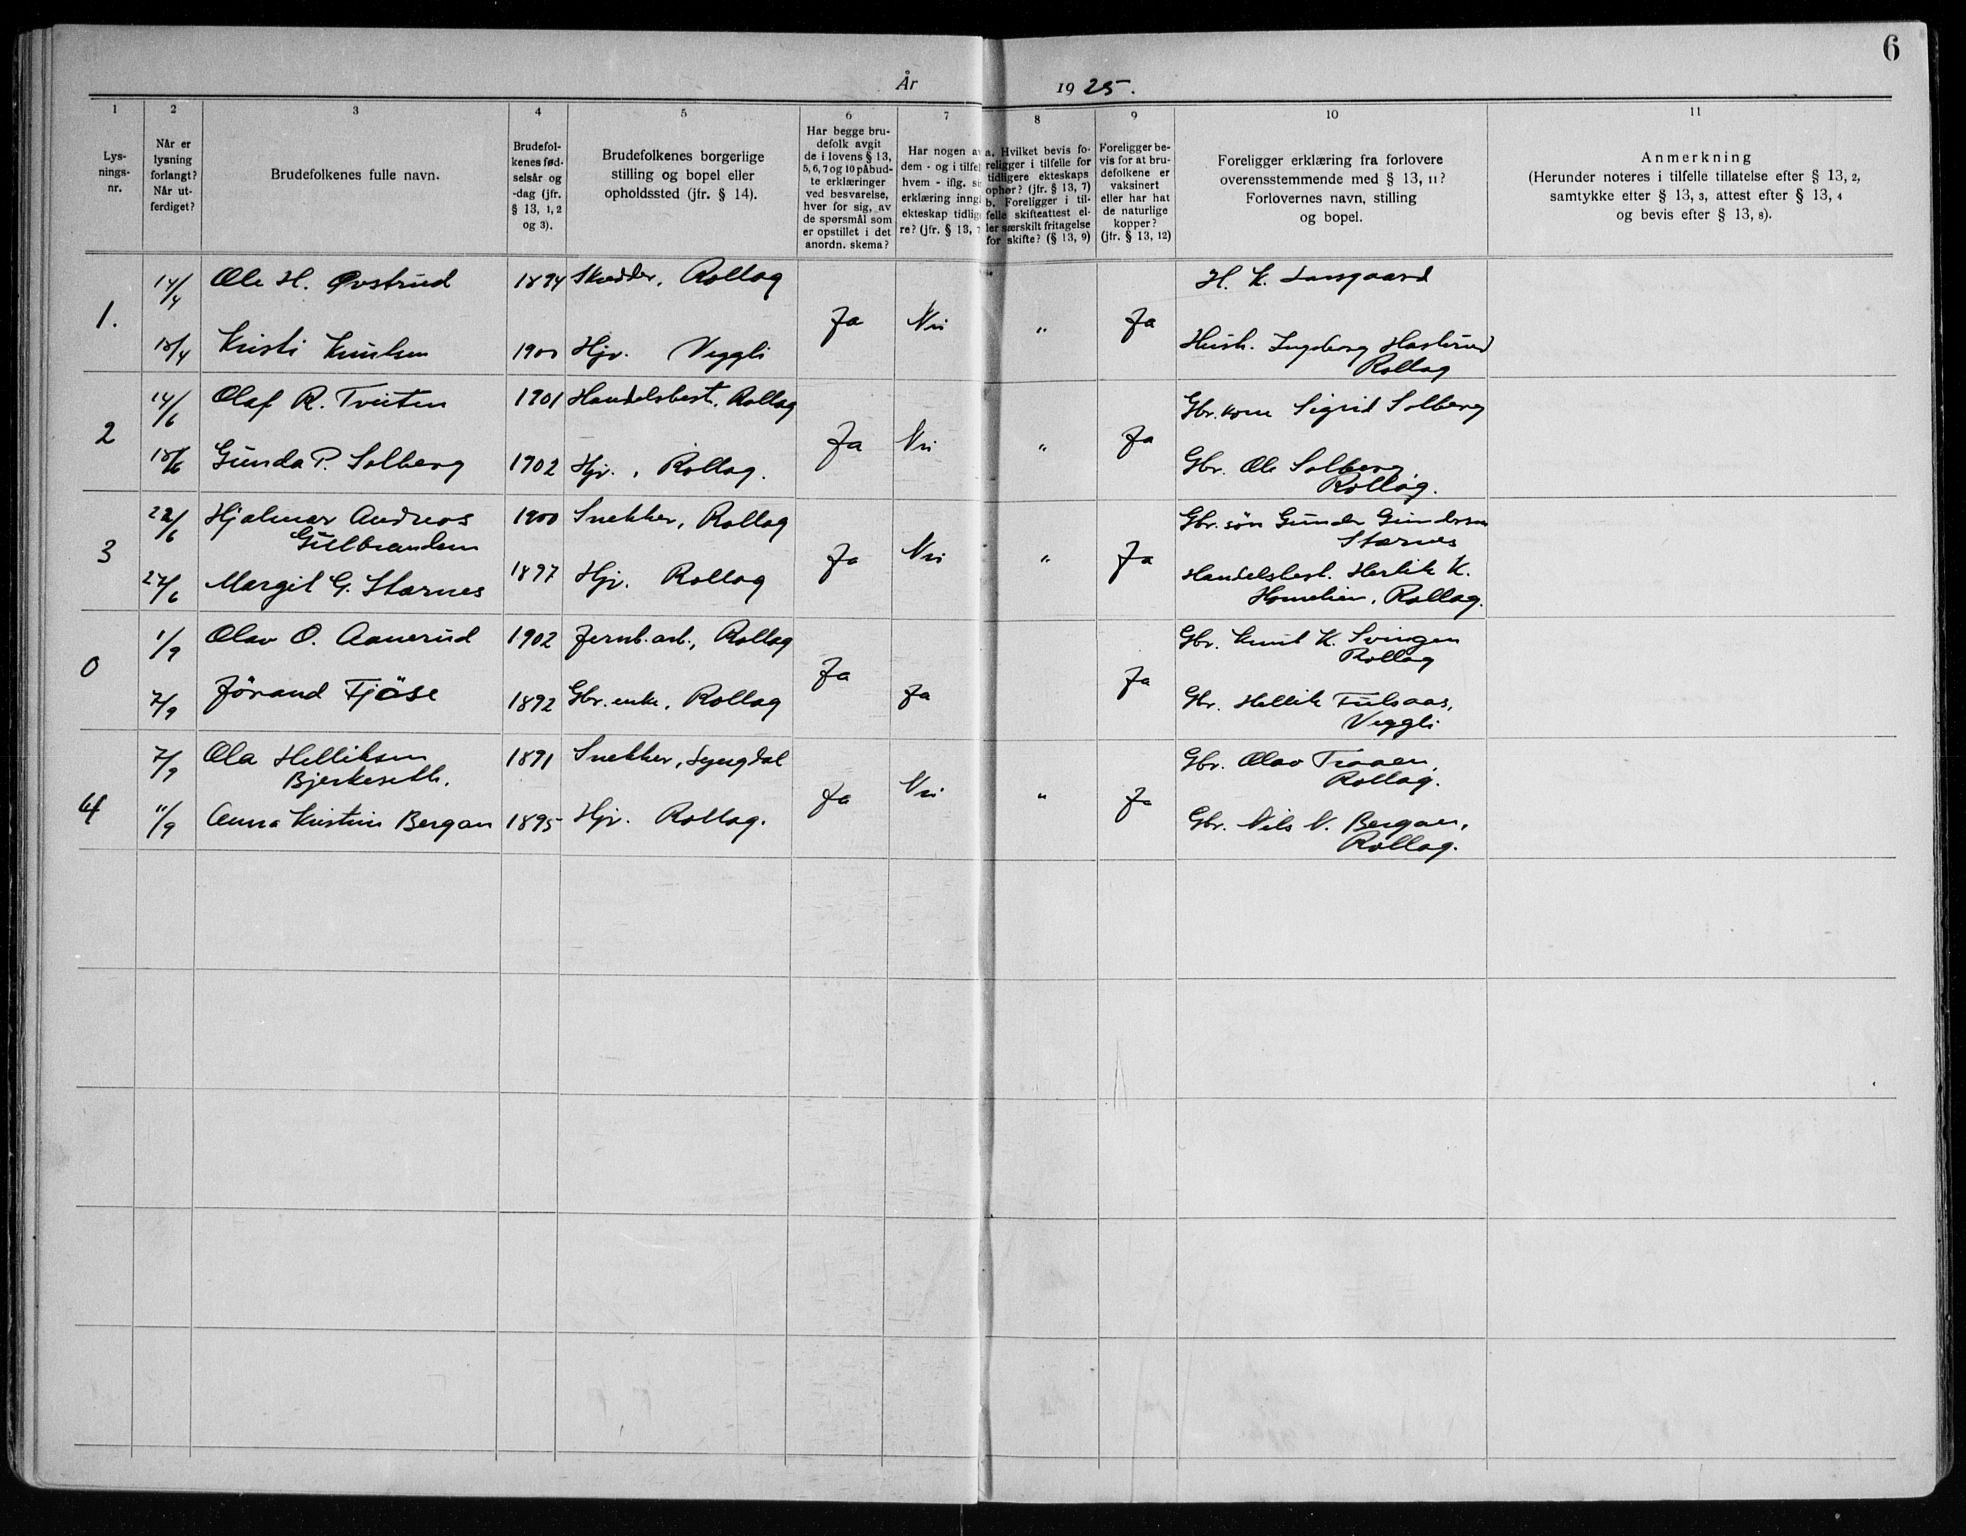 6
År 1925.
1 2 3 4 5 6 7 8 9 10 11
Lys-
nings-
nr.
Når er
lysning
forlangt?
Når ut-
ferdiget?
Brudefolkenes fulle navn.
Brudefol-
kenes fød-
selsår og
-dag (jfr.
§ 13, 1, 2
og 3).
Brudefolkenes borgerlige
stilling og bopel eller
opholdssted (jfr. § 14).
Har begge bru-
defolk avgit
de i lovens § 13,
5, 6, 7 og 10 påbud-
te erklæringer
ved besvarelse,
hver for sig, av
de spørsmål som
er opstillet i det
anordn. skema?
Har nogen av
dem - og i tilfel
hvem - iflg. si
erklæring inng
ekteskap tidlig
re? (jfr. § 13, 7
a. Hvilket bevis fo-
religger i tilfelle for
tidligere ekteskaps
ophør? (jfr. § 13, 7)
b. Foreligger i til-
felle skifteattest el-
ler særskilt fritagelse
for skifte? (§ 13, 9)
Foreligger be-
vis for at bru-
defolkene er
vaksinert
eller har hat
de naturlige
kopper?
(jfr. § 13, 12)
Foreligger erklæring fra forlovere
overensstemmende med § 13, 11?
Forlovernes navn, stilling
og bopel.
Anmerkning
(Herunder noteres i tilfelle tillatelse efter § 13, 2,
samtykke efter § 13, 3, attest efter § 13, 4
og bevis efter § 13, 8).
1. 14/4 Ole H. Øvstrud 1894 Skredder, Rollag Ja Nei „ Ja H. K.
18/4 Kristi Knutsen 1900 Hjv. Veggli Hush. Ingeborg Haslerud
Rollag
2 14/6 Olaf R. Tveiten 1901 Handelsbest. Rollag Ja Nei „ Ja Gbr. kone Sigrid Solberg
18/6 Gunda P. Solberg 1902 Hjv., Rollag. Gbr. Ole Solberg
Rollag.
3 22/6 Hjalmar Andreas 1900 Snekker, Rollag Ja Nei „ Ja Gbr. søn Gunder Gundersen
Gulbrandsen Stærnes
27/6 Margit G. Stærnes 1897 Hjv. Rollag Handelsbest. Herlik K.
Homelien, Rollag.
0 1/9 Olav O. Aanerud 1902 Jernb. arb., Rollag Ja Ja Gbr. Knut K. Svingen
Rollag
7/9 Jörand Fjöse 1892 Gbr. enke, Rollag Ja Gbr. Hellik Fulsaas,
Veggli
4 7/9 Ola Helliksen 1891 Snekker, Lyngdal Ja Nei „ Ja Gbr. Olav Traaen,
Bjerkeseth. Rollag.
11/9 Anna Kristine Bergan 1895 Hjv. Rollag. Gbr. Nils N. Bergan,
Rollag.